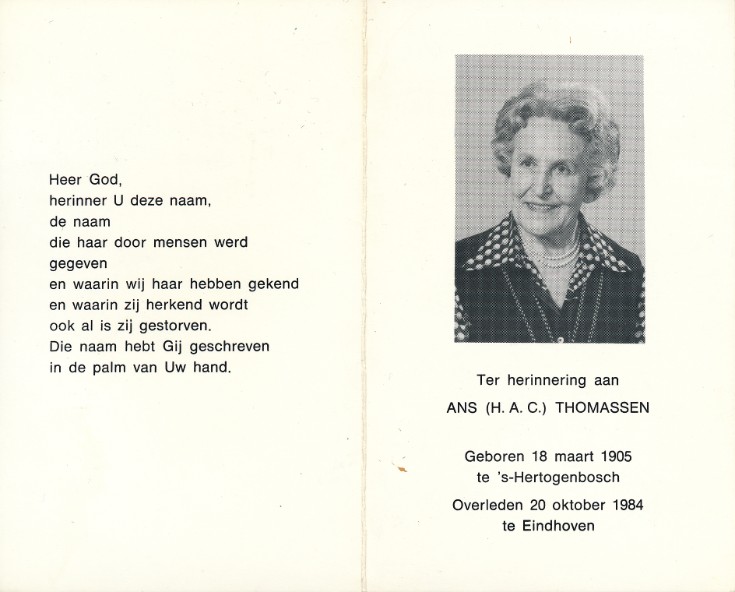 Heer God,
herinner U deze naam,
de naam
die haar door mensen werd
gegeven
en waarin wij haar hebben gekend
en waarin zij herkend wordt
ook al is zij gestorven.
Die naam hebt Gij geschreven
in de palm van Uw hand.
Ter herinnering aan
ANS (H. A. C.) THOMASSEN
Geboren 18 maart 1905
te 's-Hertogenbosch
Overleden 20 oktober 1984
te Eindhoven